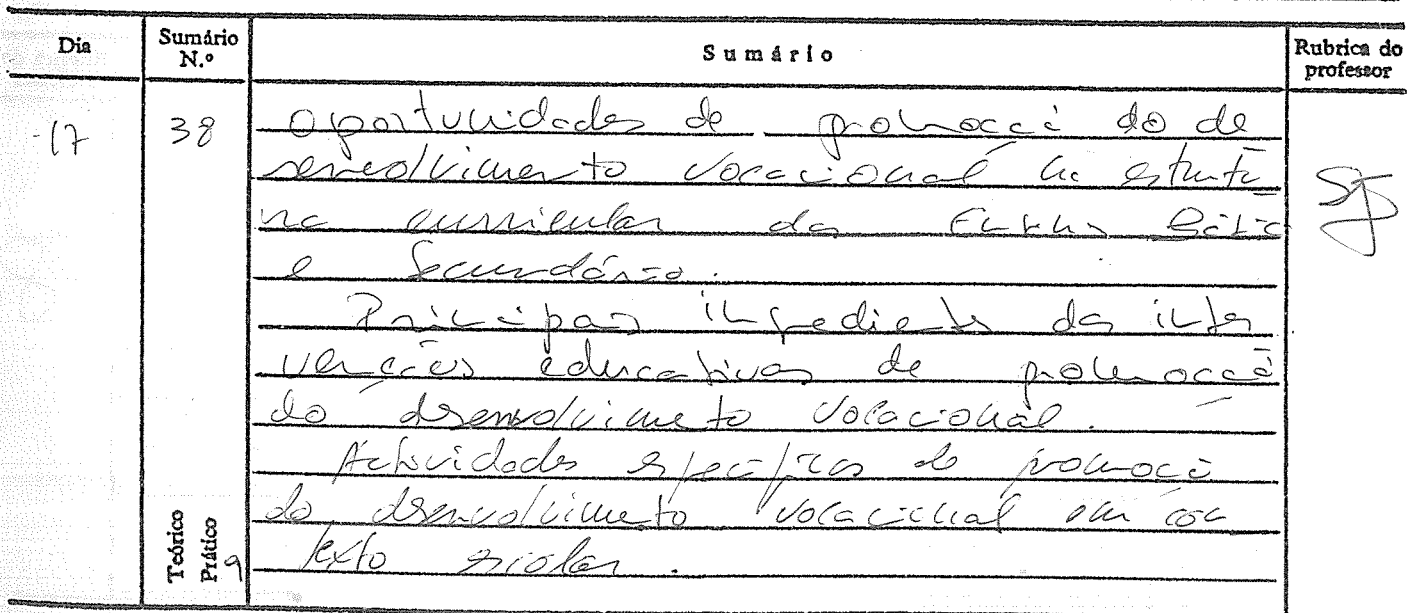 Dia Sumário N.º Sumário Rubrica do professor
17 38 Oportunidades de promoção do de
senvolvimento vocacional na estrutu
ra curricular dos Ensinos Básico
e Secundário.
Principais ingredientes das inter
venções educativas de promoção
do desenvolvimento vocacional.
Actividades específicas de promoção
do desenvolvimento vocacional em con
texto escolar.
Teórico
Prático